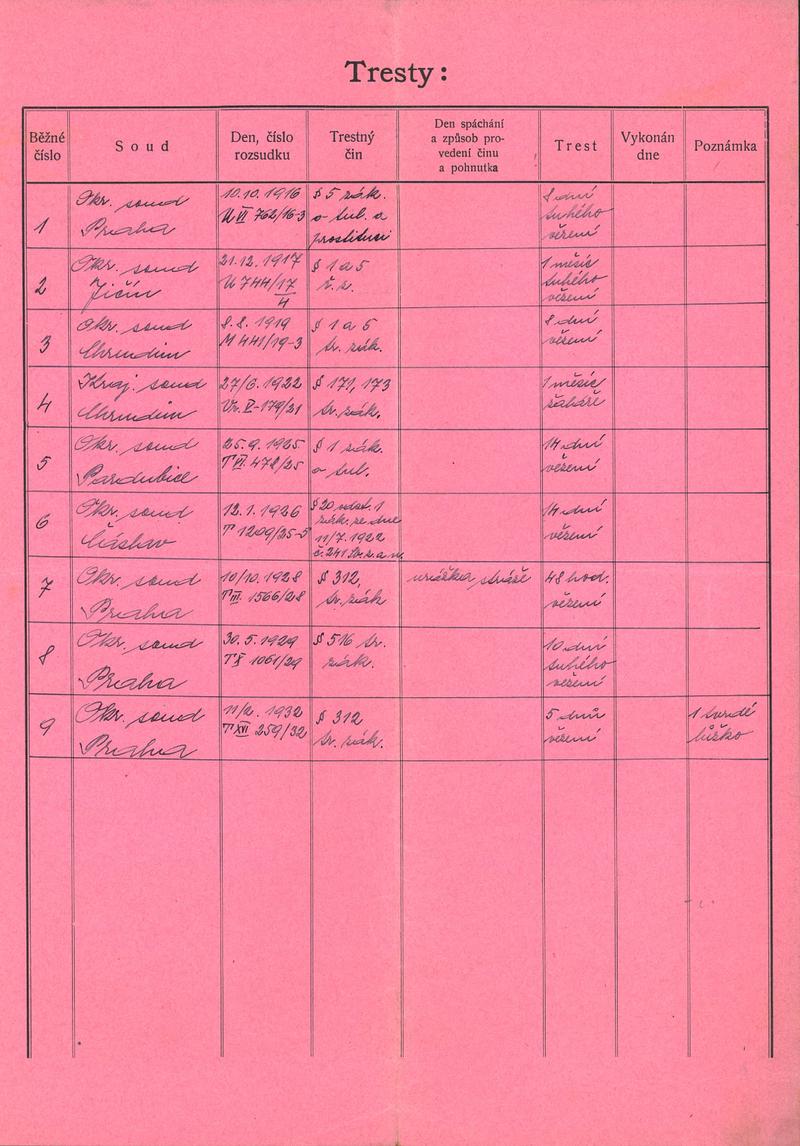 Tresty:
Běžné číslo
Soud
Den, číslo rozsudku
Trestný čin
Den spáchání a způsob provedení činu a pohnutka
Trest
Vykonán dne
Poznámka
1
Okr. soud
Praha
10.10. 1916
U VI 762/16-3
§ 5 zák.
o tul. a
prostituci
8 dní
tuhého
vězení
2
Okr. soud
Jičín
21.12. 1917
U 744/17
4
§ 1 a 5
ř. z.
1 měsíc
tuhého
vězení
3
Okr. soud
Chrudim
8.8. 1919
441/19-3
§ 1 a 5
tr. zák.
8 dní
vězení
4
Kraj. soud
Chrudim
27/6. 1922
Vr. V-179/21
§ 171, 173
tr. zák.
1 měsíc
žaláře
5
Okr. soud
Pardubice
25.9. 1925
T VI. 478/25
§ 1 zák.
o tul.
14 dní
vězení
6
Okr. soud
Čáslav
12.1. 1926
T 1209/25-5
§ 20 odst. 1
zák. ze dne
11/7. 1922
č. 241 Sb. z. a n.
14 dní
vězení
7
Okr. soud
Praha
10/10. 1928
T III. 1566/28
§ 312,
tr. zák
urážka stráže
48 hod.
vězení
8
Okr. soud
Praha
30. 5. 1929
T X 1061/29
§ 516 tr.
zák.
10 dní
tuhého
vězení
9
Okr. soud
Praha
11/2. 1932
T XVI 259/32
§ 312
tr. zák.
5 dnů
vězení
1 tvrdé
lůžko